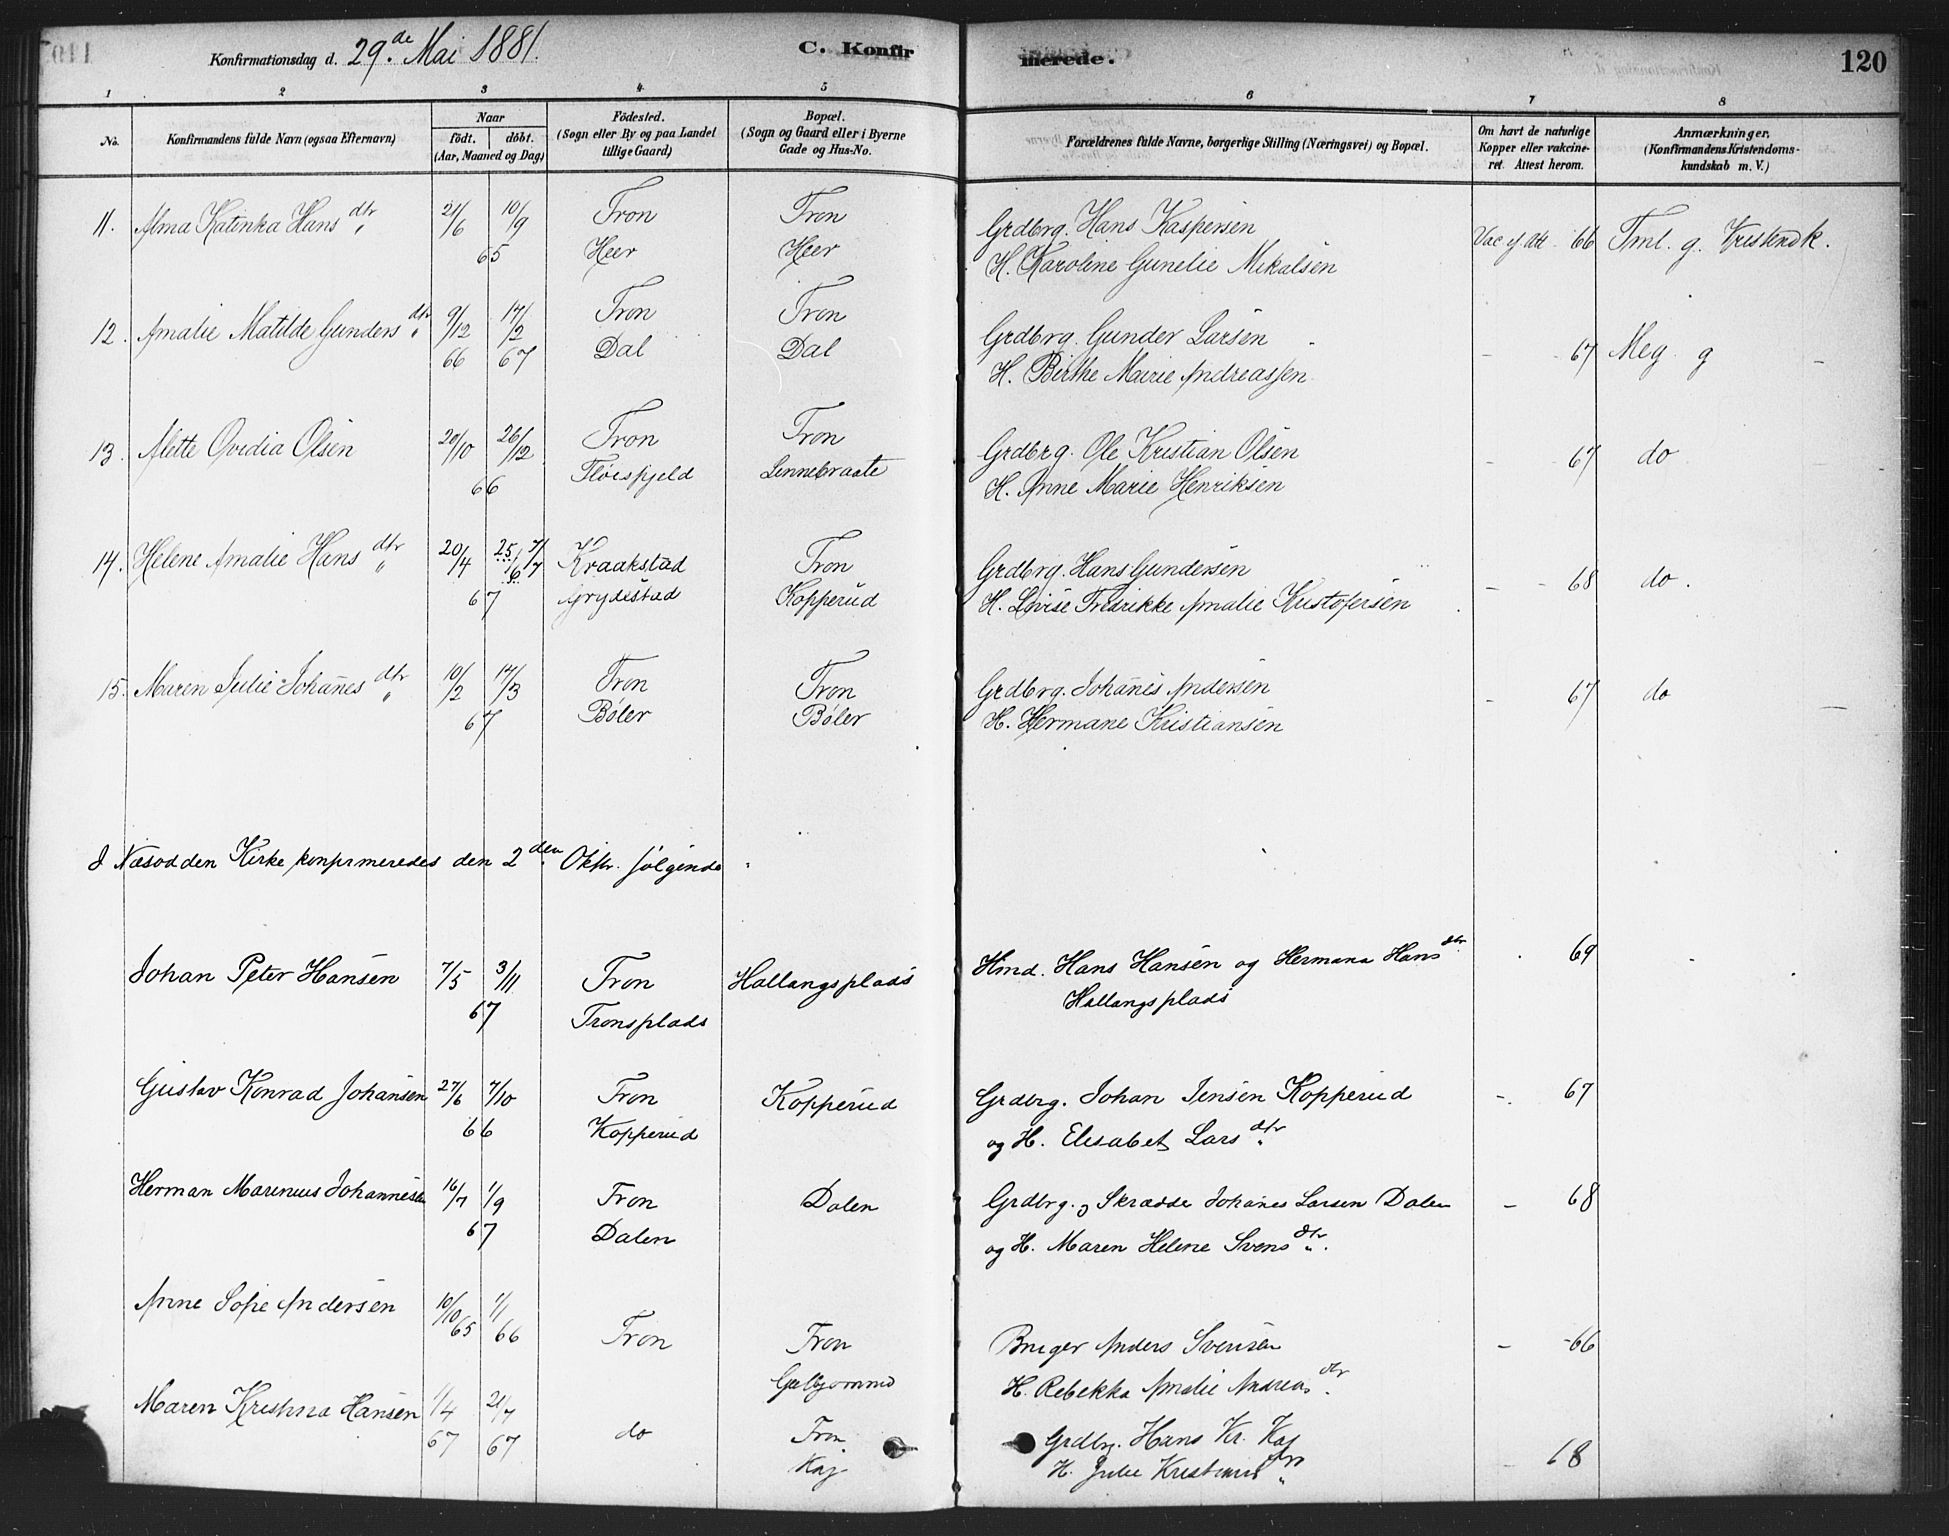 Konfirmationsdag d. 29.de Mai 1881. C. Konfirmerede. 120
1 2 3 4 5 6 7 8
No. Konfirmandens fulde Navn (ogsaa Efternavn) Naar født. døbt. (Aar, Maaned og Dag) Fødested. (Sogn eller By og paa Landet tillige Gaard) Bopæl. (Sogn og Gaard eller i Byerne Gade og Hus-No. Forældrenes fulde Navne, borgerlige Stilling (Næringsvei) og Bopæl. Om havt de naturlige Kopper eller vakcineret. Attest herom. Anmærkninger, (Konfirmandens Kristendomskundskab m. V.)
11. Alma Katinka Hansdtr 21/6 10/9 Fron Fron Grdbrg. Hans Kaspersen Vac ej Att 66 Tml. g. Kristendk.
65 Heer Heer H. Karoline Gunelie Mikalsen
12. Amalie Matilde Gundersdtr 9/12 17/2 Fron Fron Grdbrg. Gunder Larsen
66 67 Dal Dal H. Birthe Marie Andreassen - 67 Meg g
13. Alette Ovidia Olsen 20/10 26/12 Fron Fron Grdbrg. Ole Kristian Olsen - 67 do
66 Fløispjeld Linnebraate H. Anne Marie Henriksen
14. Helene Amalie Hansdtr 20/4 25/6 7/7 Kraakstad Fron Grdbrg. Hans Gundersen - 68 do.
67 Grydestad Kopperud H. Lovise Fredrikke Amalie Kristofersen
15. Maren Julie Johanesdtr 10/2 17/3 Fron Fron Grdbrg. Johanes Andersen - 67 do
67 Bøler Bøler H. Hermane Kristiansen
I Næsodden Kirke konfirmeredes den 2den Oktbr. følgende
Johan Peter Hansen 7/5 3/11 Fron Hallangsplads Hmd. Hans Hansen og Hermana Hansdtr 69
67 Fronsplads Hallangsplads
Gustav Konrad Johansen 27/6 7/10 Fron Kopperud Grdbrg. Johan Jensen Kopperud - 67
66 Kopperud og H. Elisabet Larsdtr
Herman Marenius Johannesen 16/7 1/9 Fron Dalen Grdbrg. og Skrædder Johanes Larsen Dalen - 68
67 Dalen og H. Maren Helene Svensdtr.
Anne Sofie Andersen 10/10 65 1/1 66 Fron Fron Bruger Anders Svensen - 66
H. Rebekka Amalie Andreasdtr.
Maren Kristina Hansen 1/4 21/7 do Fron Grdbrg. Hans Kr. Kaj
67 67 Kaj H. Julie Kristiansdtr 68